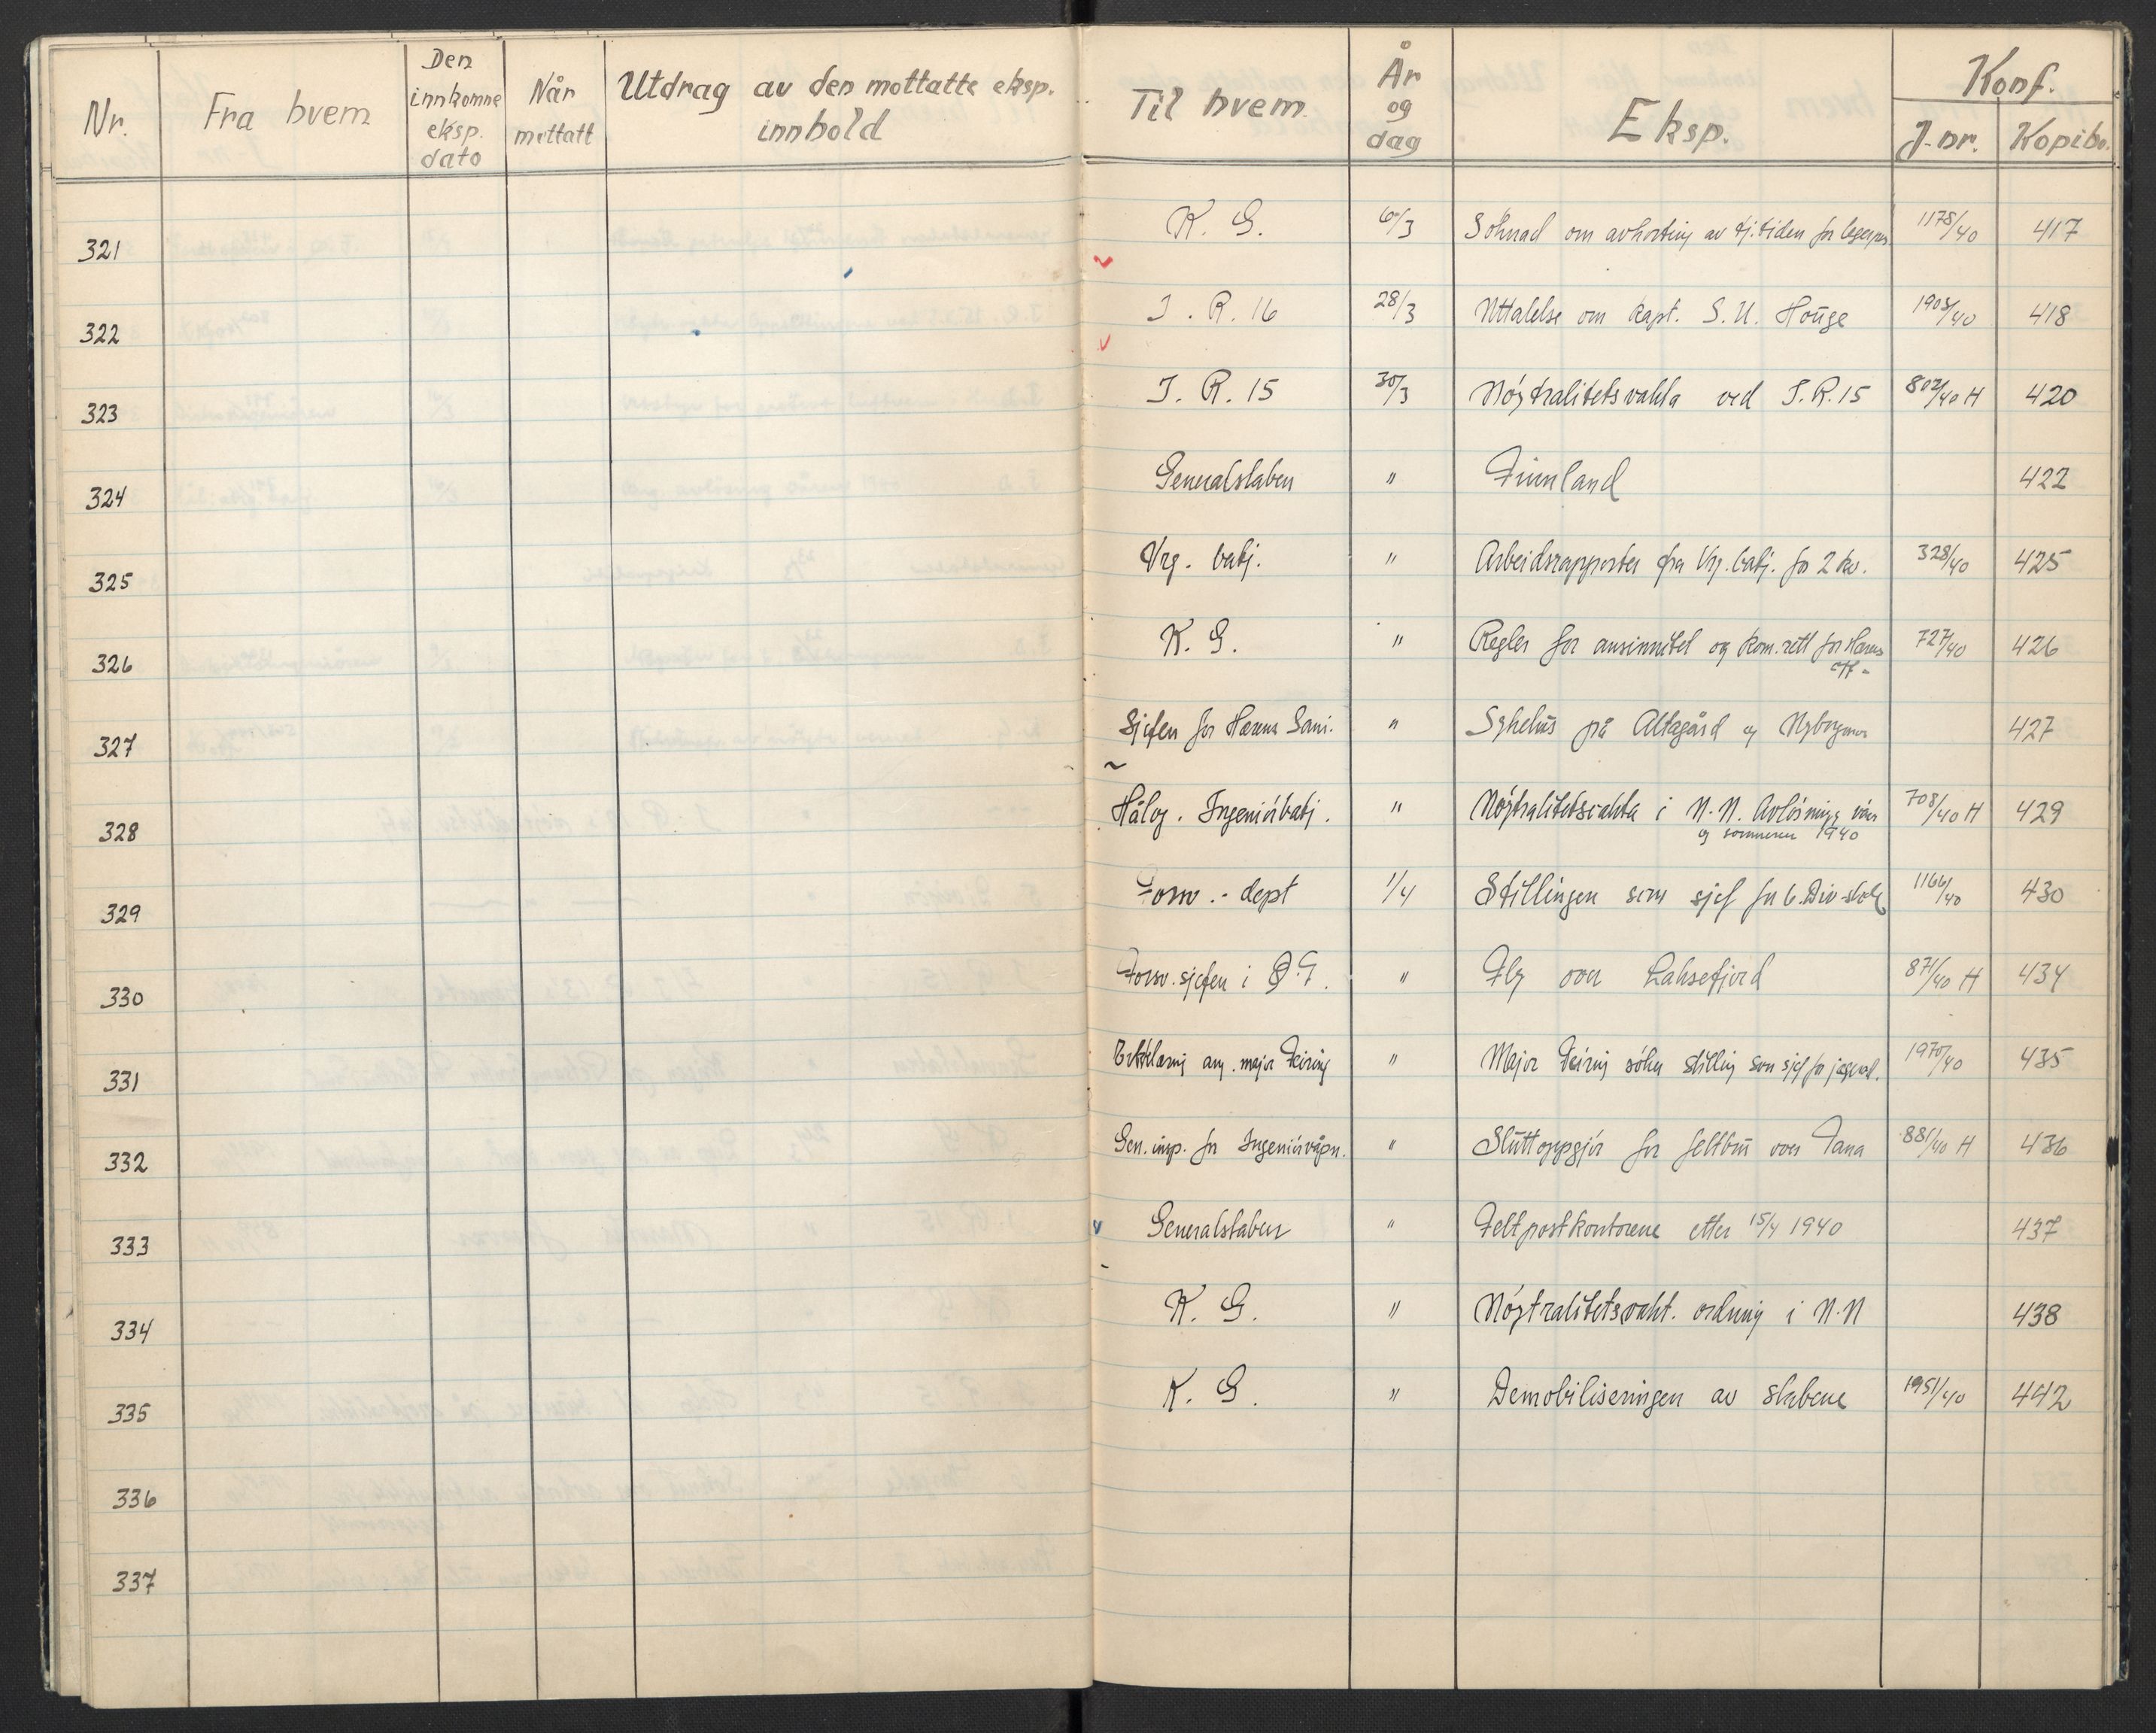 Nr.
Fra hvem
Den innkomne eksp. dato
Når mottatt
Utdrag av den mottatte eksp. innhold
Til hvem
År og dag
Eksp.
Konf.
J-nr.
Kopibo.
321 K. G. 6/3 Söknad om avkorting av tj.tiden for legepers. 1178/40 417
322 I. R. 16 28/3 Uttalelse om kapt. S. U. Houge 1903/40 418
323 I. R. 15 30/3 Nöytralitetsvakta ved I.R.15 802/40 H 420
324 Generalstaben " Finnland 422
325 Vrg. batj. " Arbeidsrapporter fra Vrg. batj. for 2 kv. 328/40 425
326 K. G. " Regler for ansinnitet og kom.rett for Hærens
off- 727/40 426
327 Sjefen for Hærens Sani. " Sykehus på Altagård og Nyborgmoen 427
328 Hålog. Ingeniörbatj. " Nöytralitetsvakta i N.N. Avlösning vår
og sommeren 1940 708/40 H 429
329 Forsv.-dept 1/4 Stillingen som sjef for 6.Div-stab 1166/40 430
330 Forsv.sjefen i Ö.F. " Fly over Laksefjord 871/40 H 434
331 Erklæring ang. major Feiring " Major Feiring söker stilling som sjef for 1970/40 435
332 Gen.insp. for Ingeniörvåpn. " Sluttoppgjör for feltbru over Tana 881/40 H 436
333 Generalstaben " Feltpostkontorene etter 15/4 1940 437
334 K. G. " Nöytralitetsvakt. ordning i N.N 438
335 K. G. " Demobiliseringen av stabene 1951/40 442
336
337